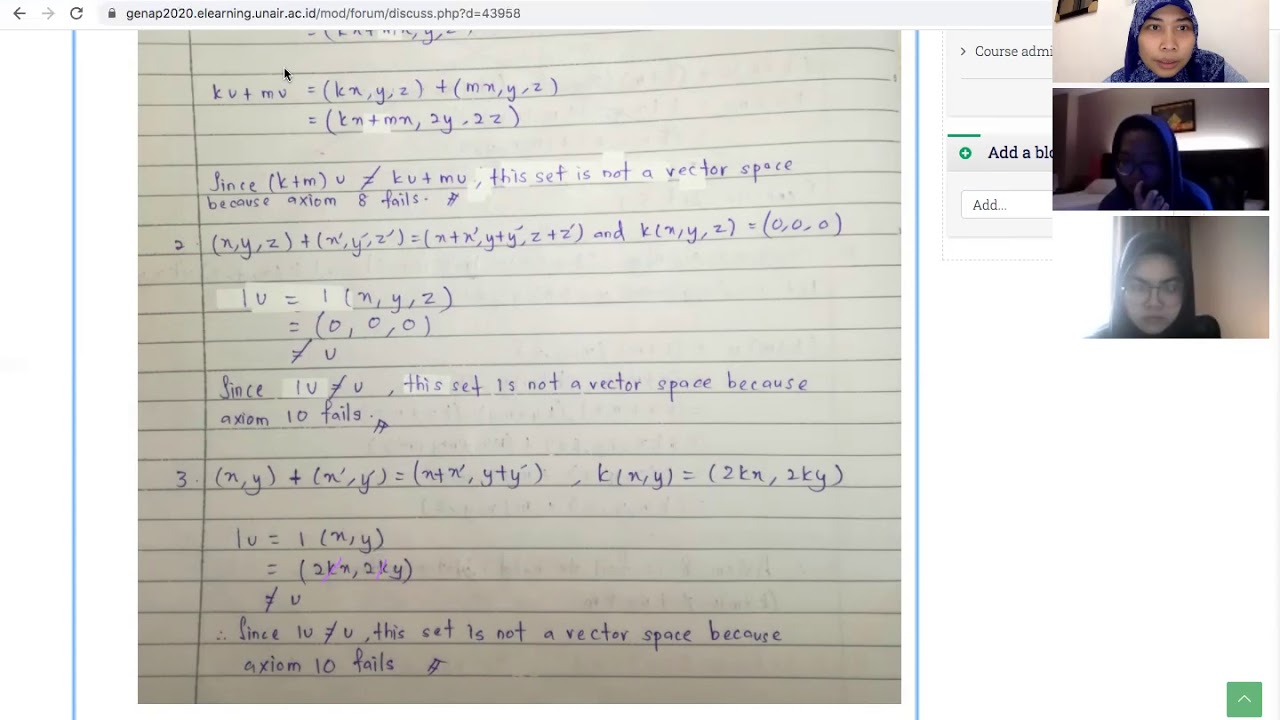 genap2020.elearning.unair.ac.id/mod/forum/discuss.php?d=43958
kv + mv = (kx, y, z) + (mx, y, z)
= (kx + mx, 2y, 2z)
Since (k+m) υ ≠ kυ + mυ, this set is not a vector space
because axiom 8 fails. #
2. (x,y,z) + (x',y',z') = (x+x', y+y', z+z') and k(x,y,z) = (0,0,0)
1υ = 1 (x, y, z)
= (0, 0, 0)
≠ υ
Since 1υ ≠ υ, this set is not a vector space because
axiom 10 fails. #
3. (x,y) + (x',y') = (x+x', y+y'), k(x,y) = (2kx, 2ky)
1υ = 1 (x, y)
= (2kx, 2ky)
≠ υ
∴ Since 1υ ≠ υ, this set is not a vector space because
axiom 10 fails #
Course admi
Add a blo
Add...